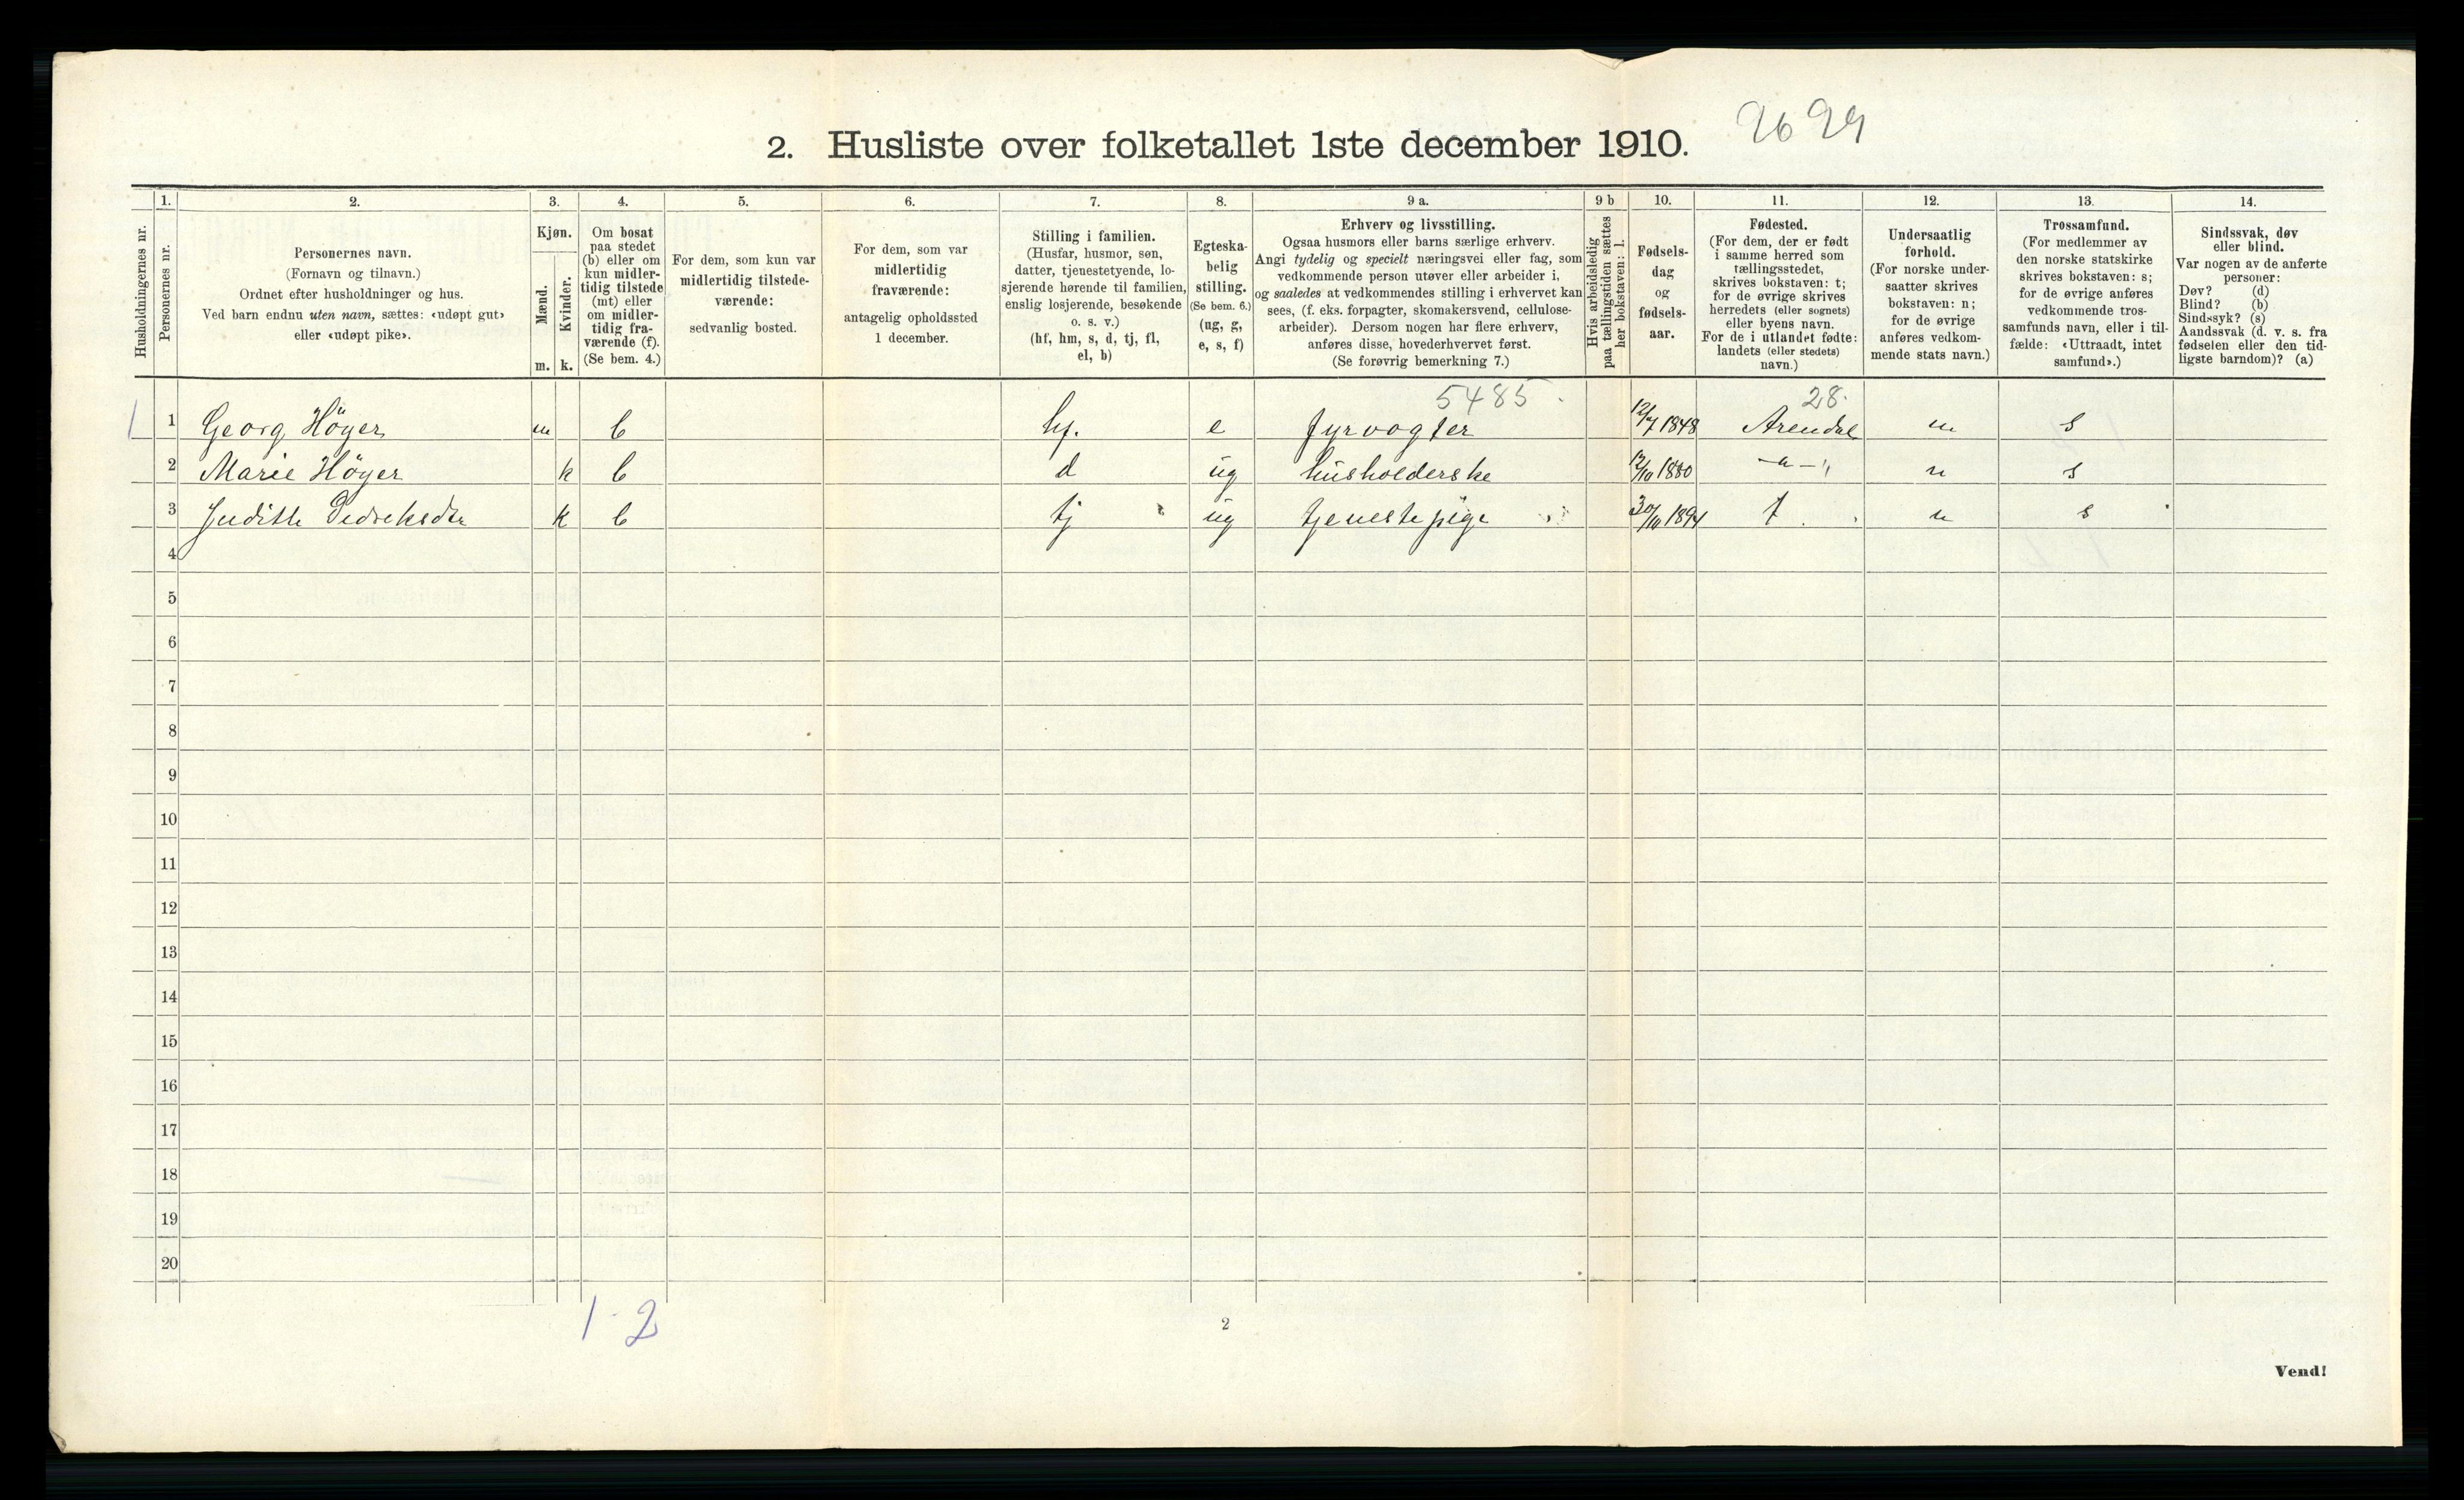 2. Husliste over folketallet 1ste december 1910. 2629
Husholdningernes nr.
1. Personernes nr.
2. Personernes navn.
(Fornavn og tilnavn.)
Ordnet efter husholdninger og hus.
Ved barn endnu uten navn, sættes: «udøpt gut»
eller «udøpt pike».
3. Kjøn.
Mænd. m.
Kvinder. k.
4. Om bosat
paa stedet
(b) eller om
kun midler-
tidig tilstede
(mt) eller
om midler-
tidig fra-
værende (f).
(Se bem. 4.)
5. For dem, som kun var
midlertidig tilstede-
værende:
sedvanlig bosted.
6. For dem, som var
midlertidig
fraværende:
antagelig opholdssted
1 december.
7. Stilling i familien.
(Husfar, husmor, søn,
datter, tjenestetyende, lo-
sjerende hørende til familien,
enslig losjerende, besøkende
o. s. v.)
(hf, hm, s, d, tj, fl,
el, b)
8. Egteska-
belig
stilling.
(Se bem. 6.)
(ug, g,
e, s, f)
9 a. Erhverv og livsstilling.
Ogsaa husmors eller barns særlige erhverv.
Angi tydelig og specielt næringsvei eller fag, som
vedkommende person utøver eller arbeider i,
og saaledes at vedkommendes stilling i erhvervet kan
sees, (f. eks. forpagter, skomakersvend, cellulose-
arbeider). Dersom nogen har flere erhverv,
anføres disse, hovederhvervet først.
(Se forøvrig bemerkning 7.)
9 b Hvis arbeidsledig
paa tællingstiden sættes
her bokstaven: l.
10. Fødsels-
dag
og
fødsels-
aar.
11. Fødested.
(For dem, der er født
i samme herred som
tællingsstedet,
skrives bokstaven: t;
for de øvrige skrives
herredets (eller sognets)
eller byens navn.
For de i utlandet fødte:
landets (eller stedets)
navn.)
12. Undersaatlig
forhold.
(For norske under-
saatter skrives
bokstaven: n;
for de øvrige
anføres vedkom-
mende stats navn.)
13. Trossamfund.
(For medlemmer av
den norske statskirke
skrives bokstaven: s;
for de øvrige anføres
vedkommende tros-
samfunds navn, eller i til-
fælde: «Uttraadt, intet
samfund».)
14. Sindssvak, døv
eller blind.
Var nogen av de anførte
personer:
Døv? (d)
Blind? (b)
Sindssyk? (s)
Aandssvak (d. v. s. fra
fødselen eller den tid-
ligste barndom)? (a)
5485. 28.
1 1 Georg Höyer m b hf. e fyrvogter 12/7 1848 Arendal n s
2 Marie Höyer k b d ug husholderske 12/10 1880 -"- n s
3 Judith Didreksdtr k b tj ug tjenestepige 30/10 1894 t. n s
4
5
6
7
8
9
10
11
12
13
14
15
16
17
18
19
20
1-2
2
Vend!